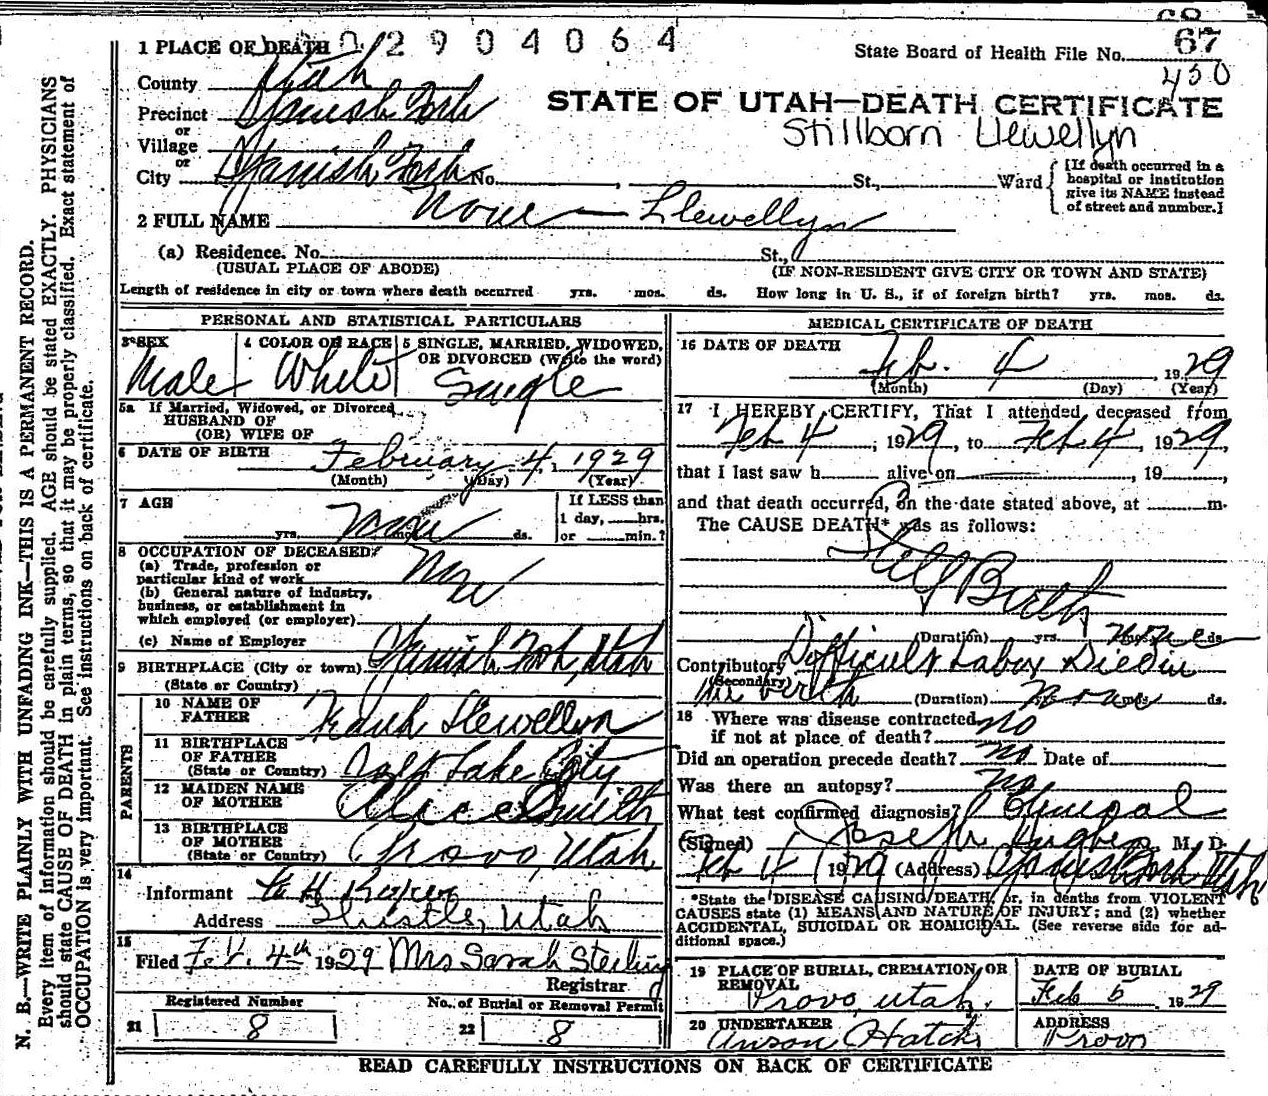 68
2904064
State Board of Health File No. 67
430
1 PLACE OF DEATH
County Utah
STATE OF UTAH—DEATH CERTIFICATE
Precinct Spanish Fork
Stillborn Llewellyn
or
Village
or
City Spanish Fork No. , St., Ward
[If death occurred in a hospital or institution give its NAME instead of street and number.]
2 FULL NAME None — Llewellyn
(a) Residence. No. St.,
(USUAL PLACE OF ABODE) (IF NON-RESIDENT GIVE CITY OR TOWN AND STATE)
Length of residence in city or town where death occurred yrs. mos. ds. How long in U. S., if of foreign birth? yrs. mos. ds.
PERSONAL AND STATISTICAL PARTICULARS
3 SEX Male
4 COLOR OR RACE White
5 SINGLE, MARRIED, WIDOWED, OR DIVORCED (Write the word) Single
5a If Married, Widowed, or Divorced
HUSBAND OF
(OR) WIFE OF
6 DATE OF BIRTH February 4, 1929
(Month) (Day) (Year)
7 AGE None
yrs. mos. ds.
If LESS than
1 day, hrs.
or min.?
8 OCCUPATION OF DECEASED
(a) Trade, profession or
particular kind of work
(b) General nature of industry,
business, or establishment in
which employed (or employer)
(c) Name of Employer
9 BIRTHPLACE (City or town) Spanish Fork, Utah
(State or Country)
PARENTS
10 NAME OF FATHER Frank Llewellyn
11 BIRTHPLACE OF FATHER Salt Lake City
(State or Country)
12 MAIDEN NAME OF MOTHER Alice Smith
13 BIRTHPLACE OF MOTHER Provo, Utah
(State or Country)
14
Informant
Address Thistle, Utah
15
Filed Feb. 4th 1929 Mrs Sarah Sterling
Registrar
Registered Number
21 8
No. of Burial or Removal Permit
22 8
MEDICAL CERTIFICATE OF DEATH
16 DATE OF DEATH
Feb. 4 1929
(Month) (Day) (Year)
17 I HEREBY CERTIFY, That I attended deceased from
Feb 4, 1929, to Feb 4, 1929,
that I last saw h alive on , 19 ,
and that death occurred, on the date stated above, at m.
The CAUSE DEATH* was as follows:
Still Birth
(Duration) yrs. mos. ds. None
Contributory Difficult Labor Died in
(Secondary)
the birth (Duration) None mos. ds.
18 Where was disease contracted
if not at place of death? no
Did an operation precede death? no Date of
Was there an autopsy? no
What test confirmed diagnosis? Clinical
(Signed) Joseph Hughes M. D.
Feb 4 1929 (Address) Spanish Fork Utah
*State the DISEASE CAUSING DEATH, or, in deaths from VIOLENT
CAUSES state (1) MEANS AND NATURE OF INJURY; and (2) whether
ACCIDENTAL, SUICIDAL OR HOMICIDAL. (See reverse side for ad-
ditional space.)
19 PLACE OF BURIAL, CREMATION, OR REMOVAL
Provo, Utah.
DATE OF BURIAL
Feb 5, 1929
20 UNDERTAKER
Anson Hatch
ADDRESS
Provo
READ CAREFULLY INSTRUCTIONS ON BACK OF CERTIFICATE
N. B.—WRITE PLAINLY WITH UNFADING INK—THIS IS A PERMANENT RECORD.
Every item of information should be carefully supplied. AGE should be stated EXACTLY. PHYSICIANS
should state CAUSE OF DEATH in plain terms, so that it may be properly classified. Exact statement of
OCCUPATION is very important. See instructions on back of certificate.